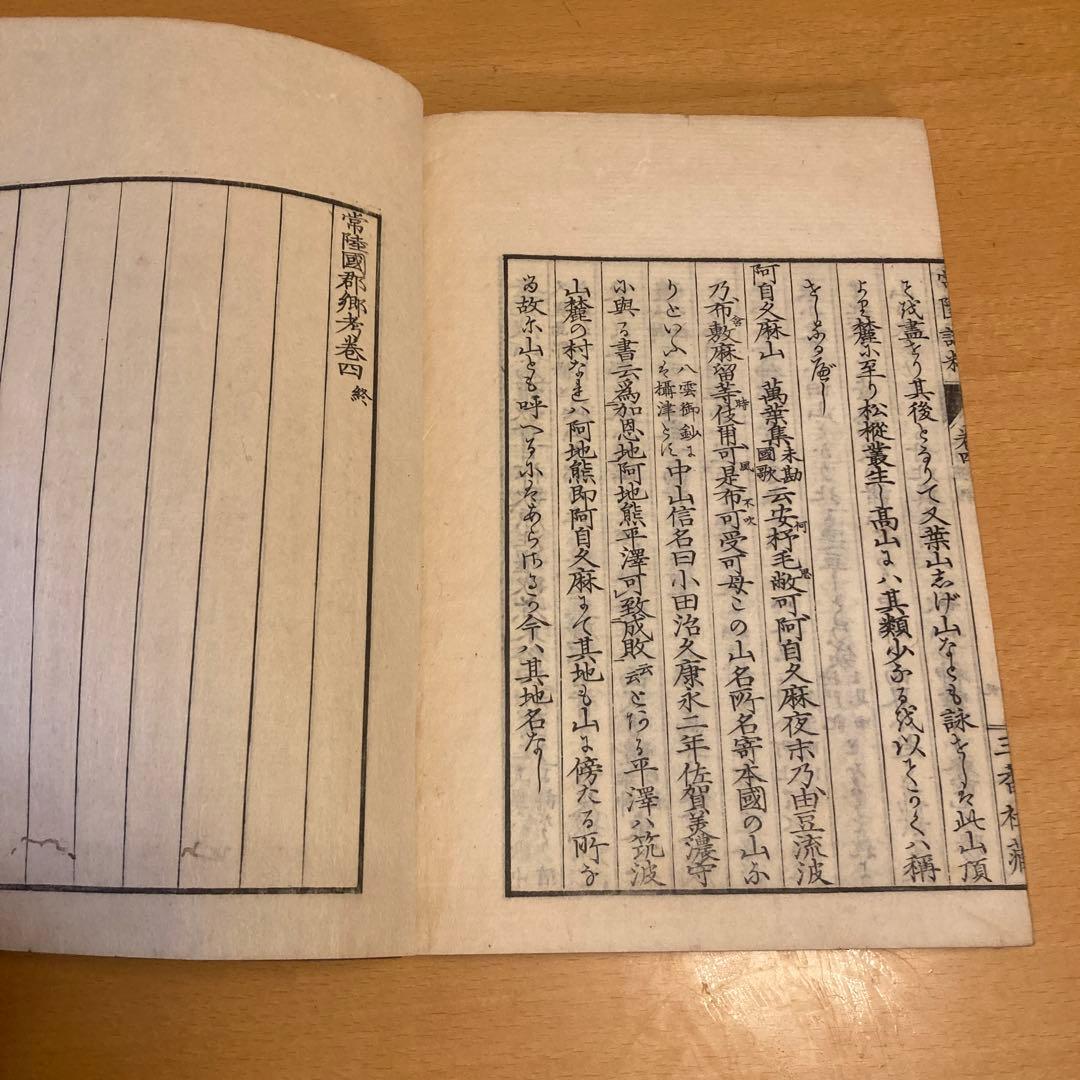 を伐盡せり其後となりて又葉山しげ山なとも詠せしは此山頂
より麓に至り松樅叢生し高山には其類少なる伐以てかくは稱
せしなるべし
阿自久麻山 萬葉集未勘國歌云安杼毛敝可阿自久麻夜末乃由豆流波
乃布敷麻留等伎爾可是布可受可母この山名所名寄本國の山に
りといへり八雲御鈔に攝津とす中山信名曰小田治久康永二年佐賀美濃守
に與る書云爲加恩地阿地熊平澤可致成敗云云とある平澤ハ筑波
山麓の村なれハ阿地熊即阿自久麻にて其地も山に傍たる所な
る故に山とも呼へるにはあらさるか今ハ其地名なし
三香社藏
常陸國郡郷考卷四 終